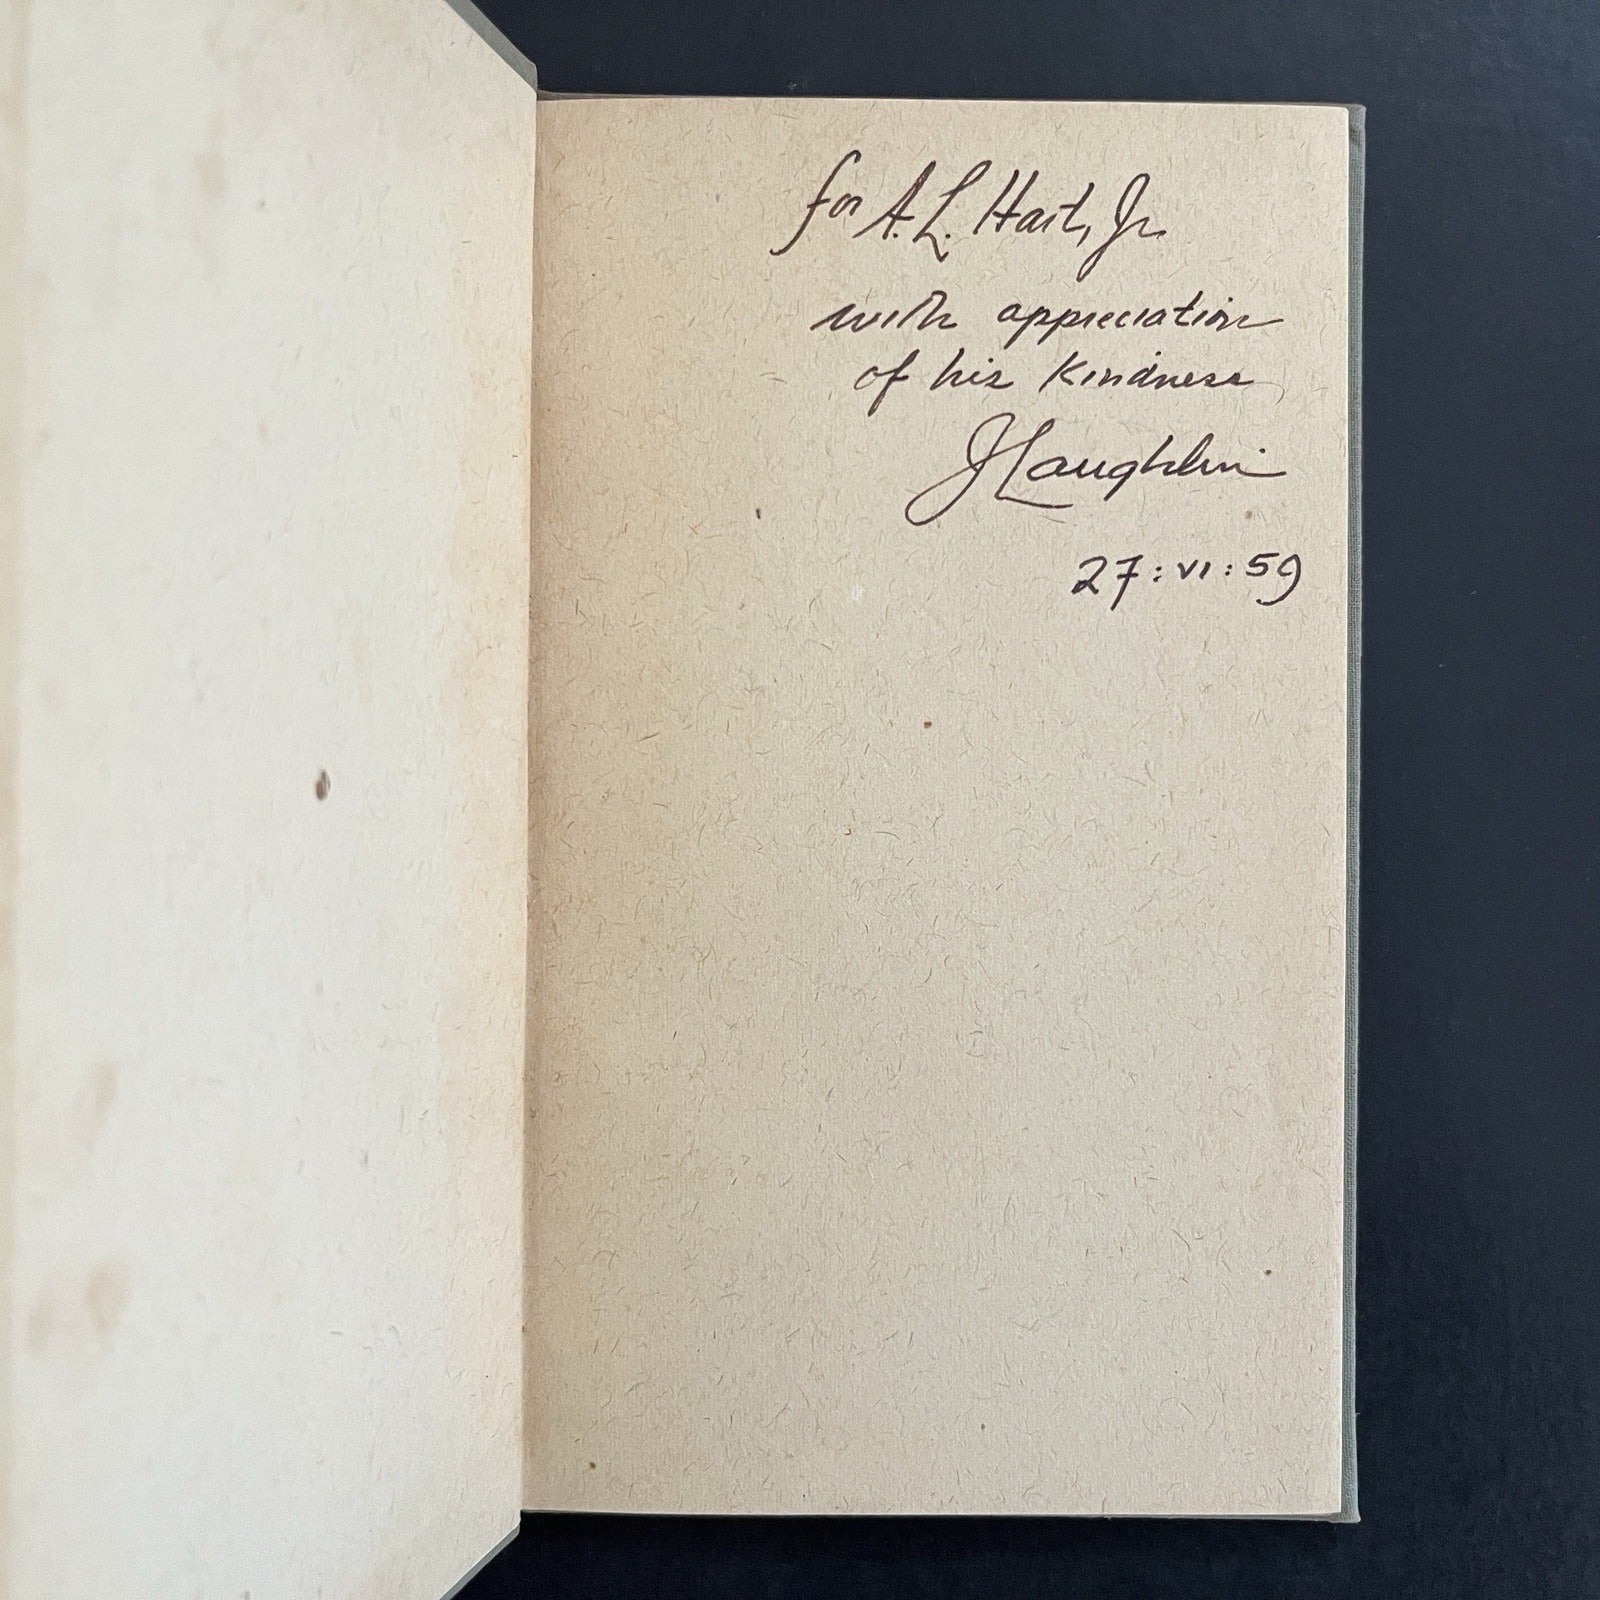 for A. L. Hart, Jr.
with appreciation
of his kindness
J Laughlin
27 : VI : 59